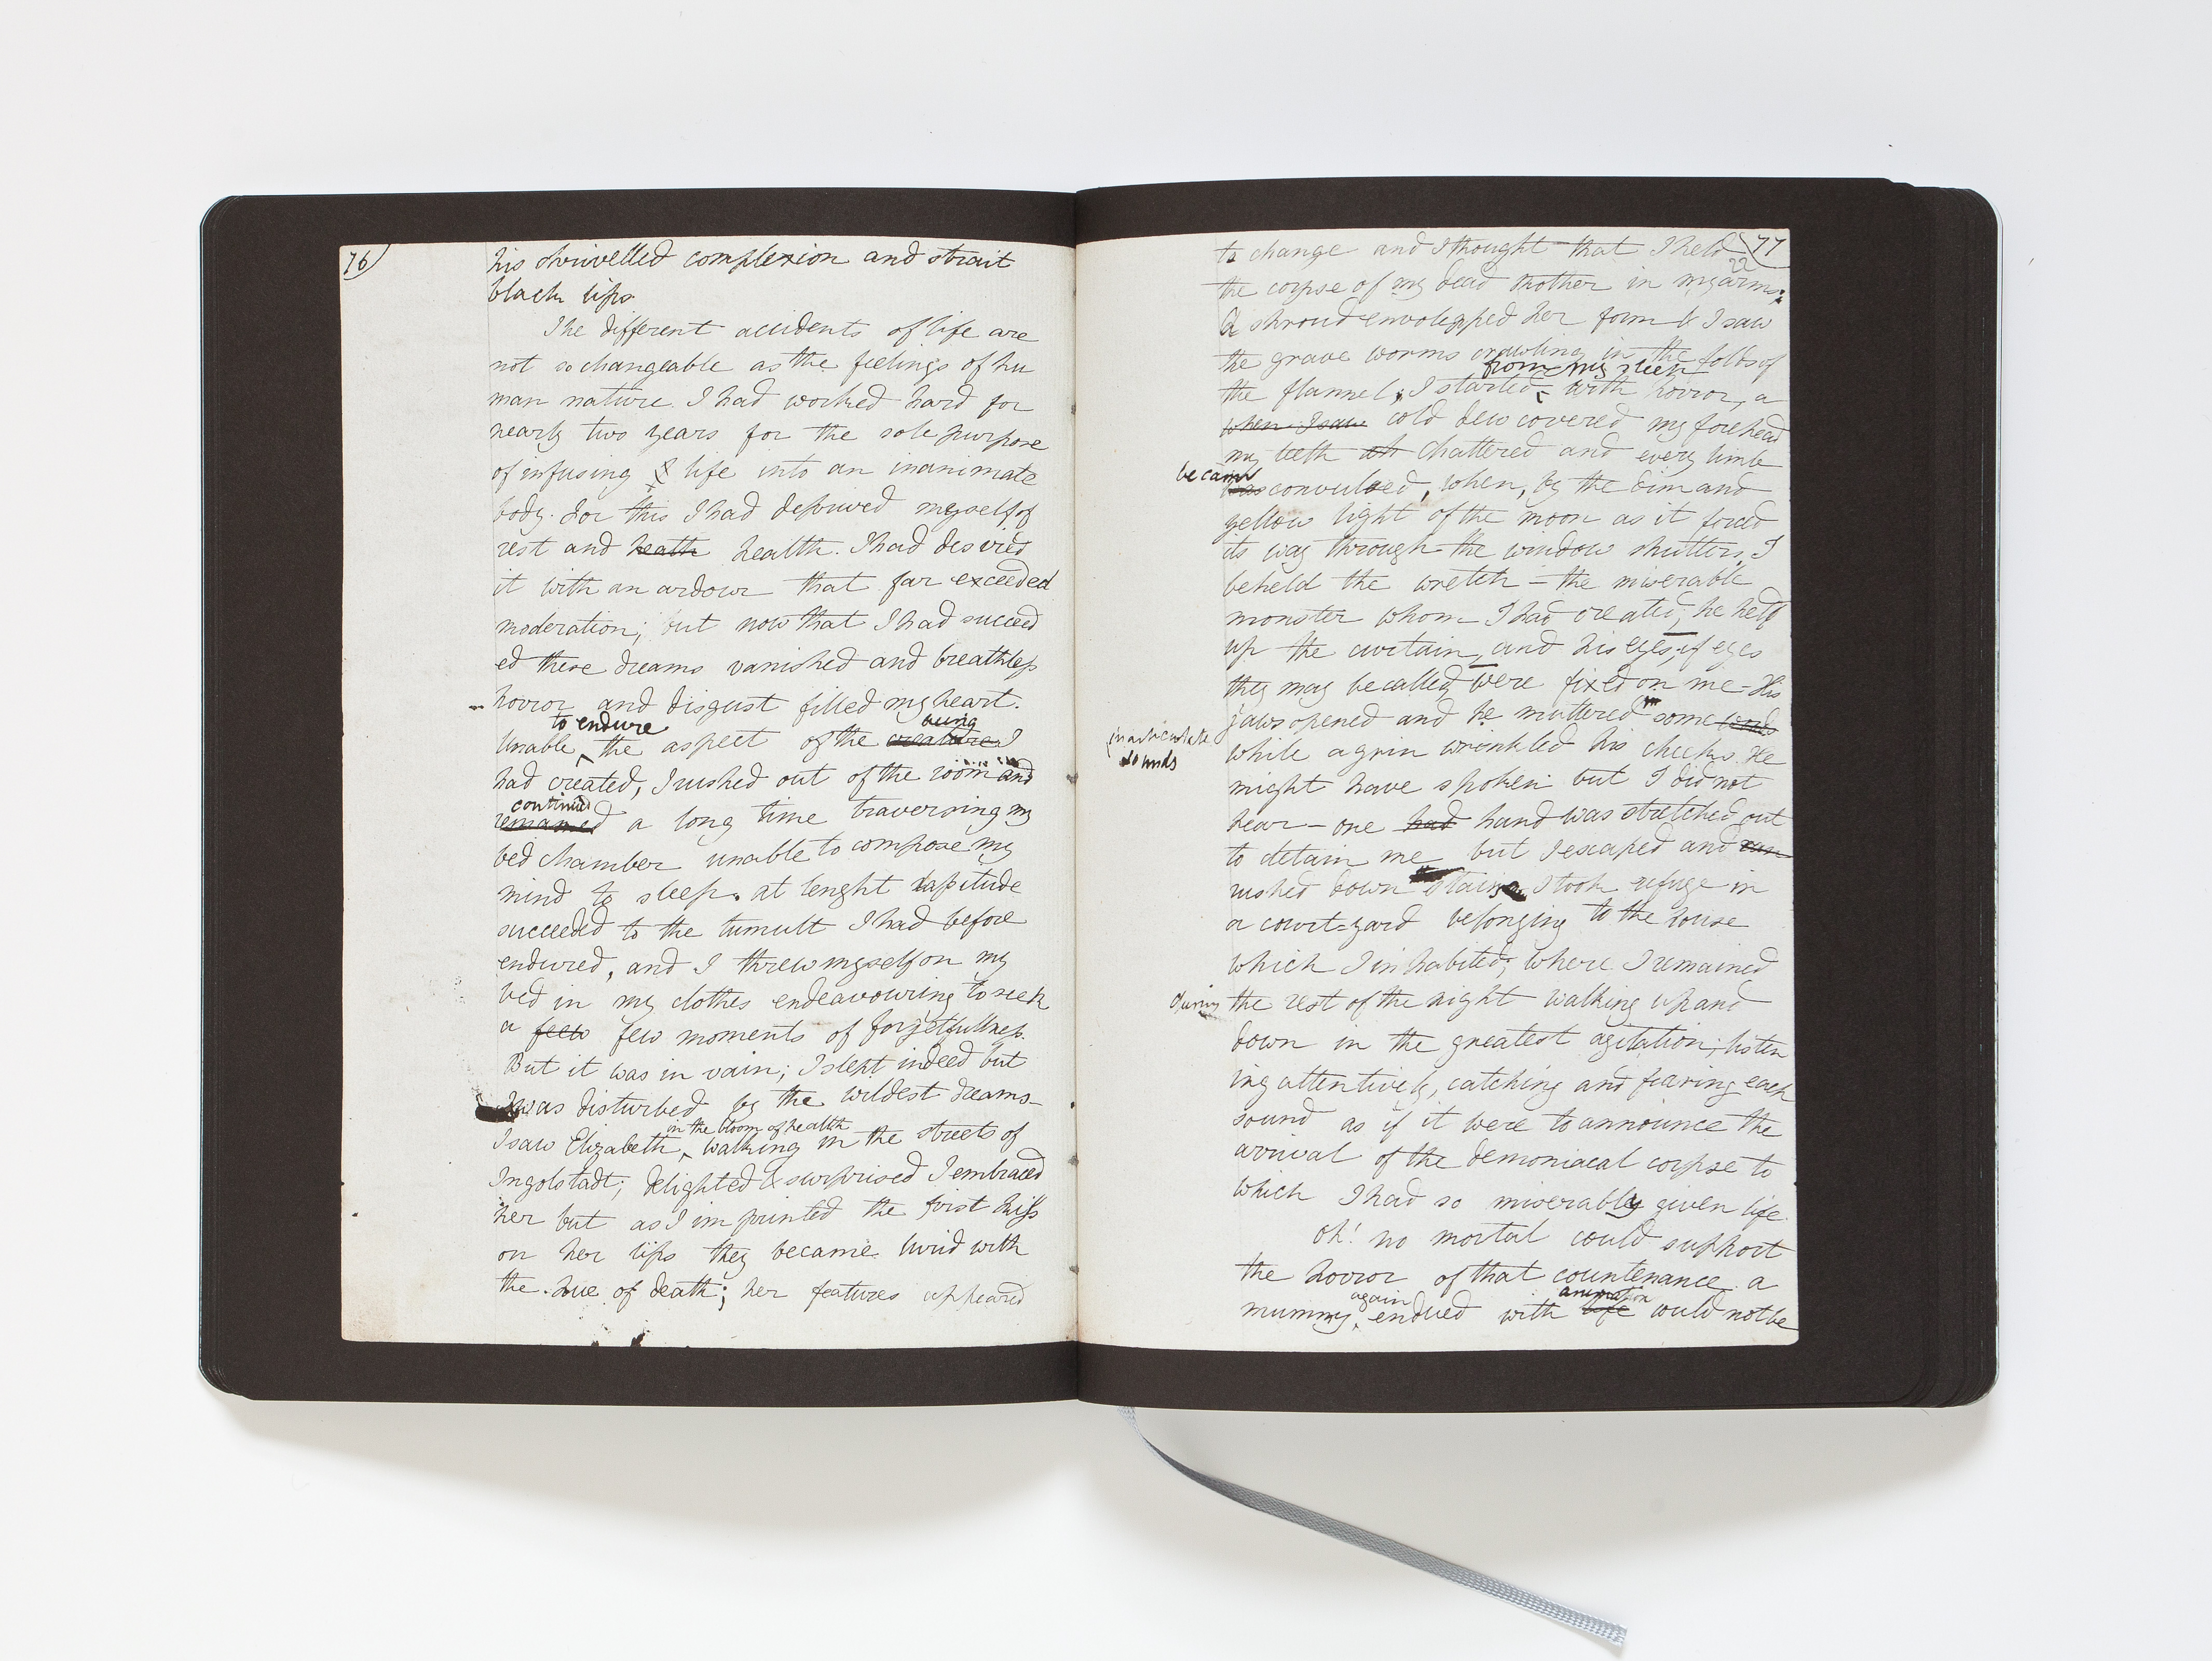 76
his shrivelled complexion and strait
black lips
The different accidents of life are
not so changeable as the feelings of hu
man nature. I had worked hard for
nearly two years for the sole purpose
of infusing life into an inanimate
body. For this I had deprived myself of
rest and heath health. I had desired
it with an ardour that far exceeded
moderation; but now that I had succeed
ed these dreams vanished and breathless
horror and disgust filled my heart.
to endure being
Unable ‸ the aspect of the creature I
had created, I rushed out of the room and
continued
remained a long time traversing my
bed chamber unable to compose my
mind to sleep. at lenght lassitude
succeeded to the tumult I had before
endured, and I threw myself on my
bed in my clothes endeavouring to seek
a feew few moments of forgetfullness.
But it was in vain; I slept indeed but
I was disturbed by the wildest dreams—
in the bloom of health
I saw Elizabeth ‸ walking in the streets of
Ingolstadt; delighted & surprised I embraced
her but as I imprinted the first kiss
on her lips they became livid with
the hue of death; her features appeared
77
to change and I thought that I held
22
the corpse of my dead mother in my arms;
a shroud envolopped her form & I saw
the grave worms crawling in the folds of
from my sleep
the flannel; I started ‸ with horror, a
when I saw cold dew covered my forehead
my teeth chattered and every limb
became
was convulsed, when, by the dim and
yellow light of the moon as it forced
its way through the window shutters, I
beheld the wretch — the miserable
monster whom I had created; he held
up the curtain, and his eyes, if eyes
they may be called, were fixed on me — His
jaws opened and he muttered some words
inarticulate
sounds
while a grin wrinkled his cheeks. He
might have spoken but I did not
hear — one had hand was stretched out
to detain me but I escaped and ran
rushed down stairs I took refuge in
a court=yard belonging to the house
which I inhabited; where I remained
during the rest of the night walking up and
down in the greatest agitation; listen
ing attentively, catching and fearing each
sound as if it were to announce the
arrival of the demoniacal corpse to
which I had so miserably given life.
Oh! no mortal could support
the horror of that countenance. a
again animation
mummy ‸ endued with life could not be